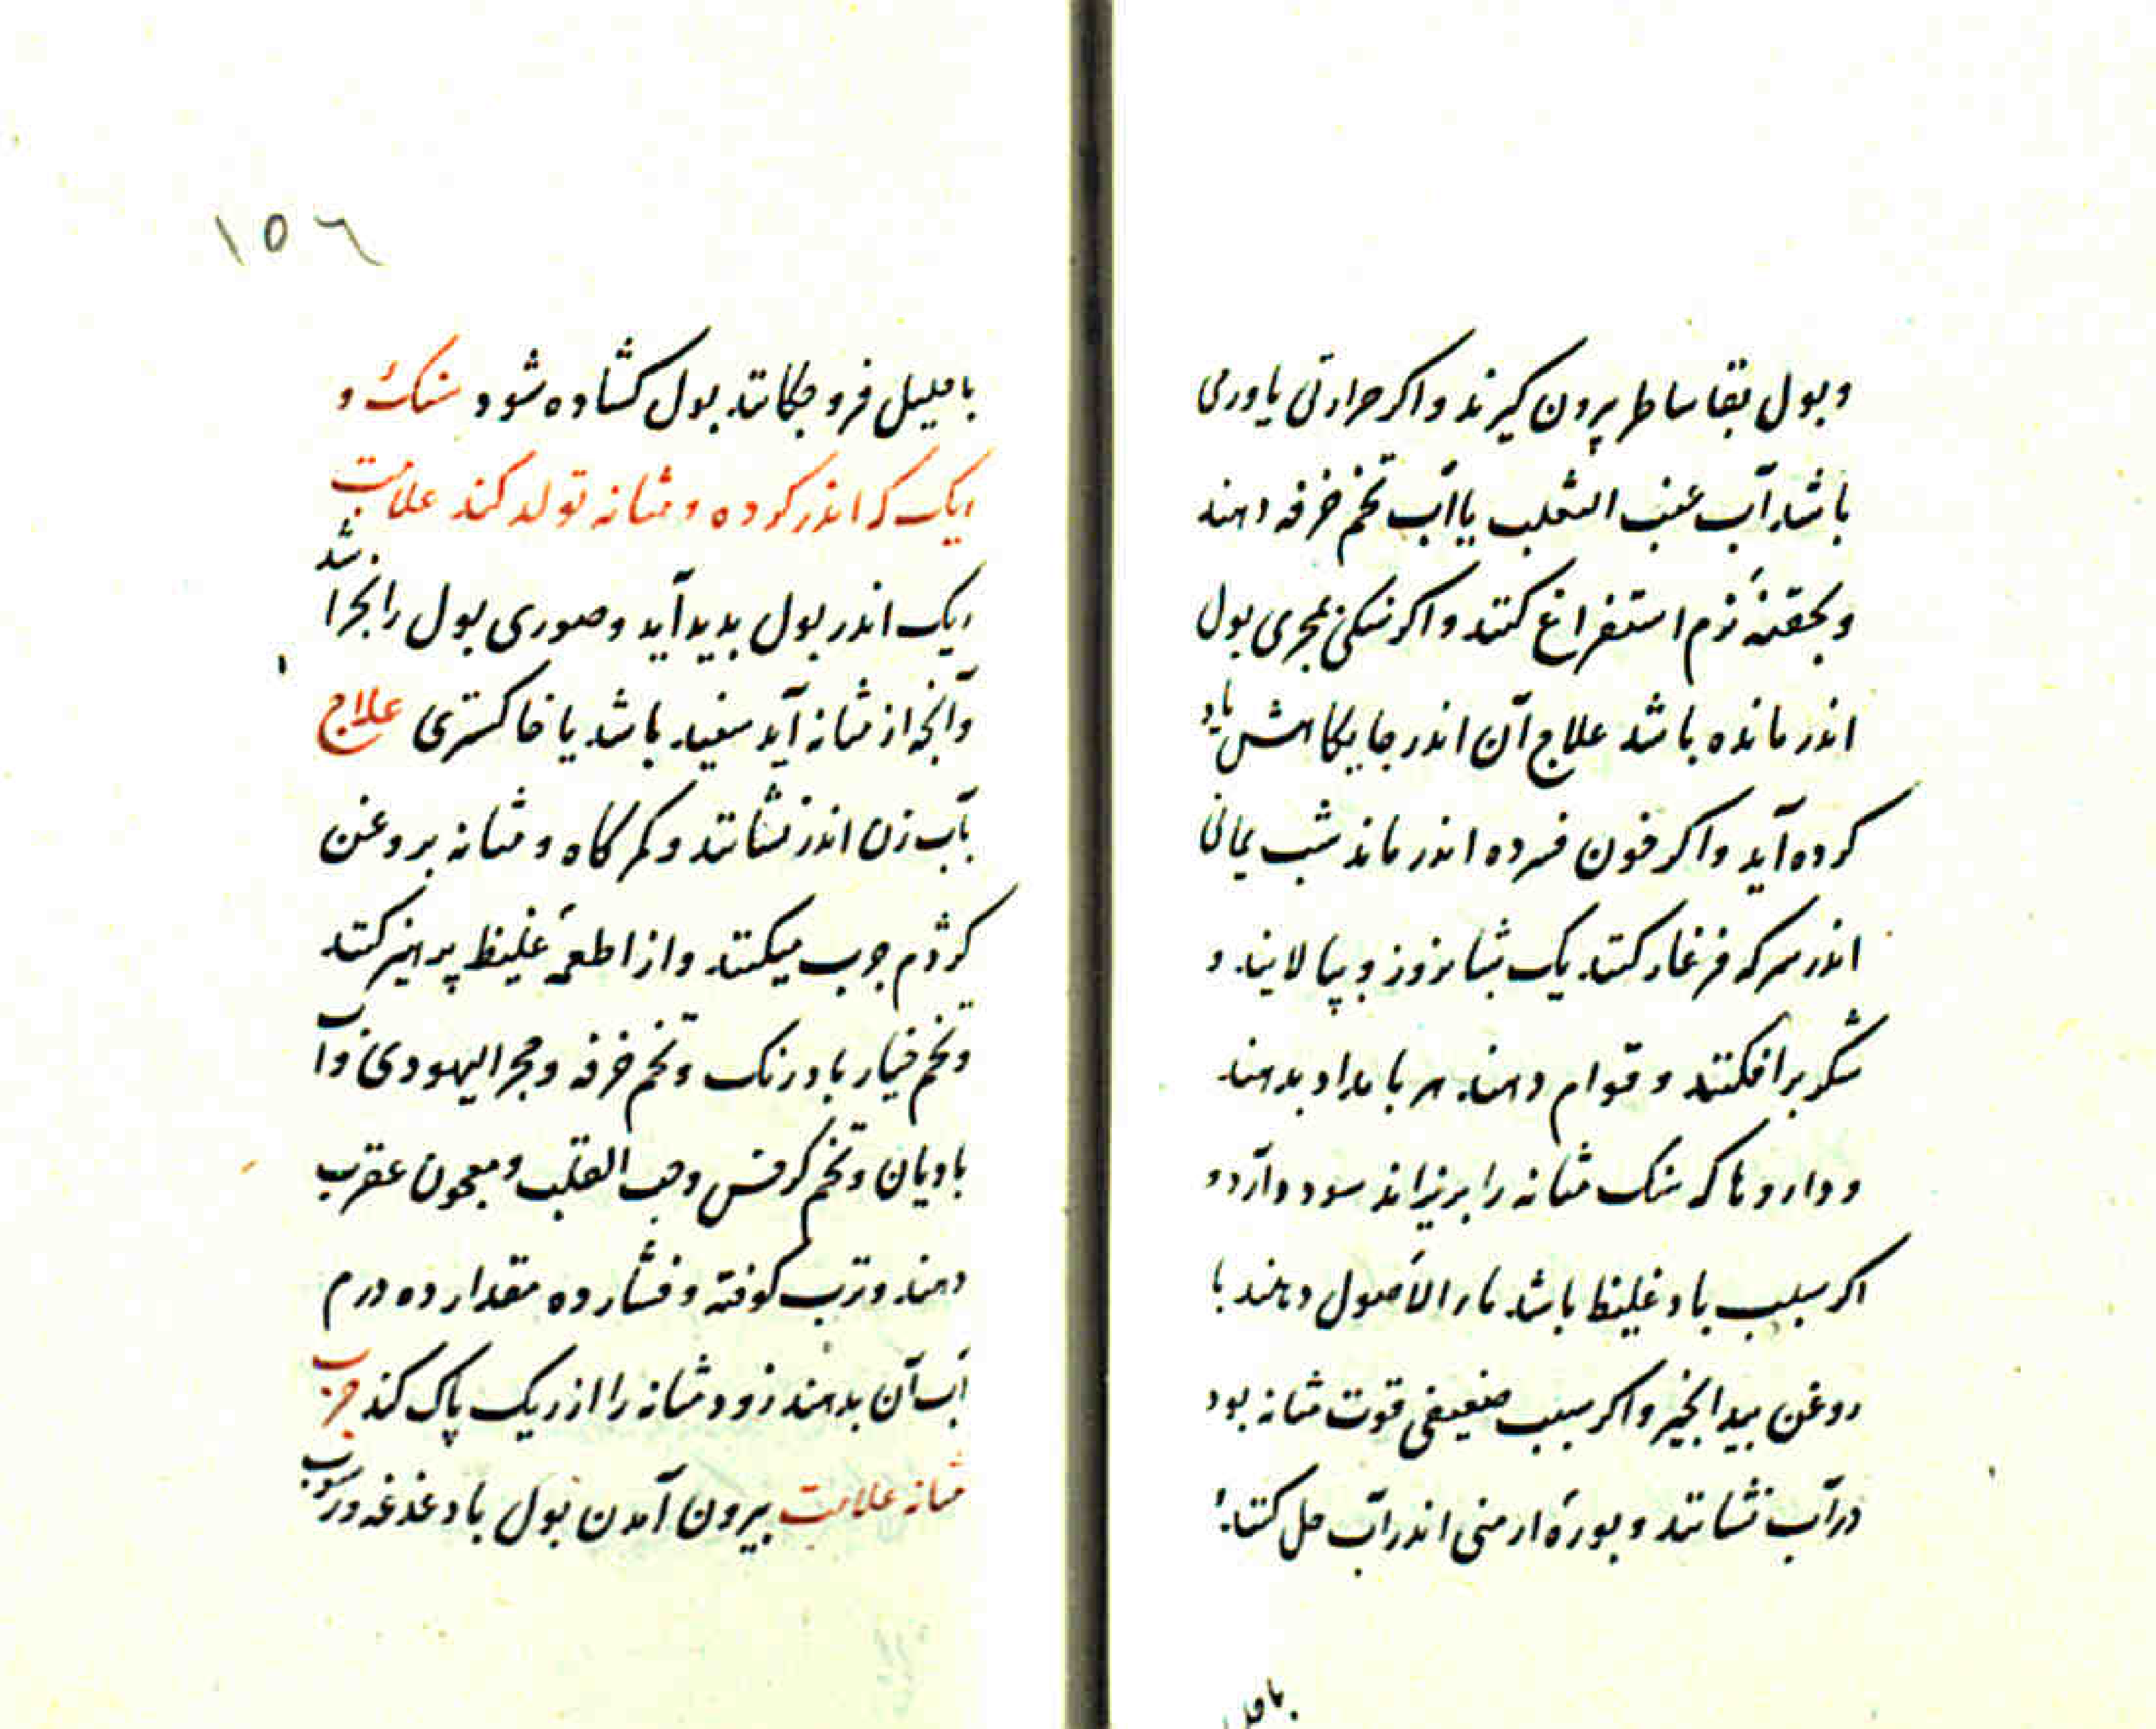 و بول بقاساطر بیرون کیرند و اکر حرارتی یا ورمی
باشد آب عنب الثعلب یا آب تخم خرفه دهند
و بحقنهٔ نرم استفراغ کنند و اکر سنکی بمجری بول
اندر مانده باشد علاج آن اندر جایکاهش یاد
کرده آید و اکر خون فسرده اندر ماند شب یمانی
اندر سرکه فرغار کنند یک شبانروز و بپالایند و
شکر برافکنند و قوام دهند هر بامداد بدهند
و داروها که سنک مثانه را بریزاند سود دارد و
اکر سبب باد غلیظ باشد ماء الاصول دهند با
روغن بید انجیر و اکر سبب ضعیفی قوت مثانه بود
در آب نشانند و بورهٔ ارمنی اندر آب حل کنند
باحلیل
١٥٦
باحلیل فرو چکانند بول کشاده شود سنک و
ریک که اندر کرده و مثانه تولد کند علامت
ریک اندر بول بدید آید و صوری بول را بخراشد
و آنچه از مثانه آید سفید باشد یا خاکستری علاج
بآب زن اندر نشانند و کمرکاه و مثانه بروغن
کژدم چرب میکنند و از اطعمهٔ غلیظ پرهیز کنند
و تخم خیار بادرنک و تخم خرفه و حجر الیهودی و آب
بادیان و تخم کرفس و حب القلب و معجون عقرب
دهند و ترب کوفته و فشارده مقدار ده درم
آب آن بدهند زود مثانه را از ریک پاک کند جرب
مثانه علامت بیرون آمدن بول با دغدغه و رسوب